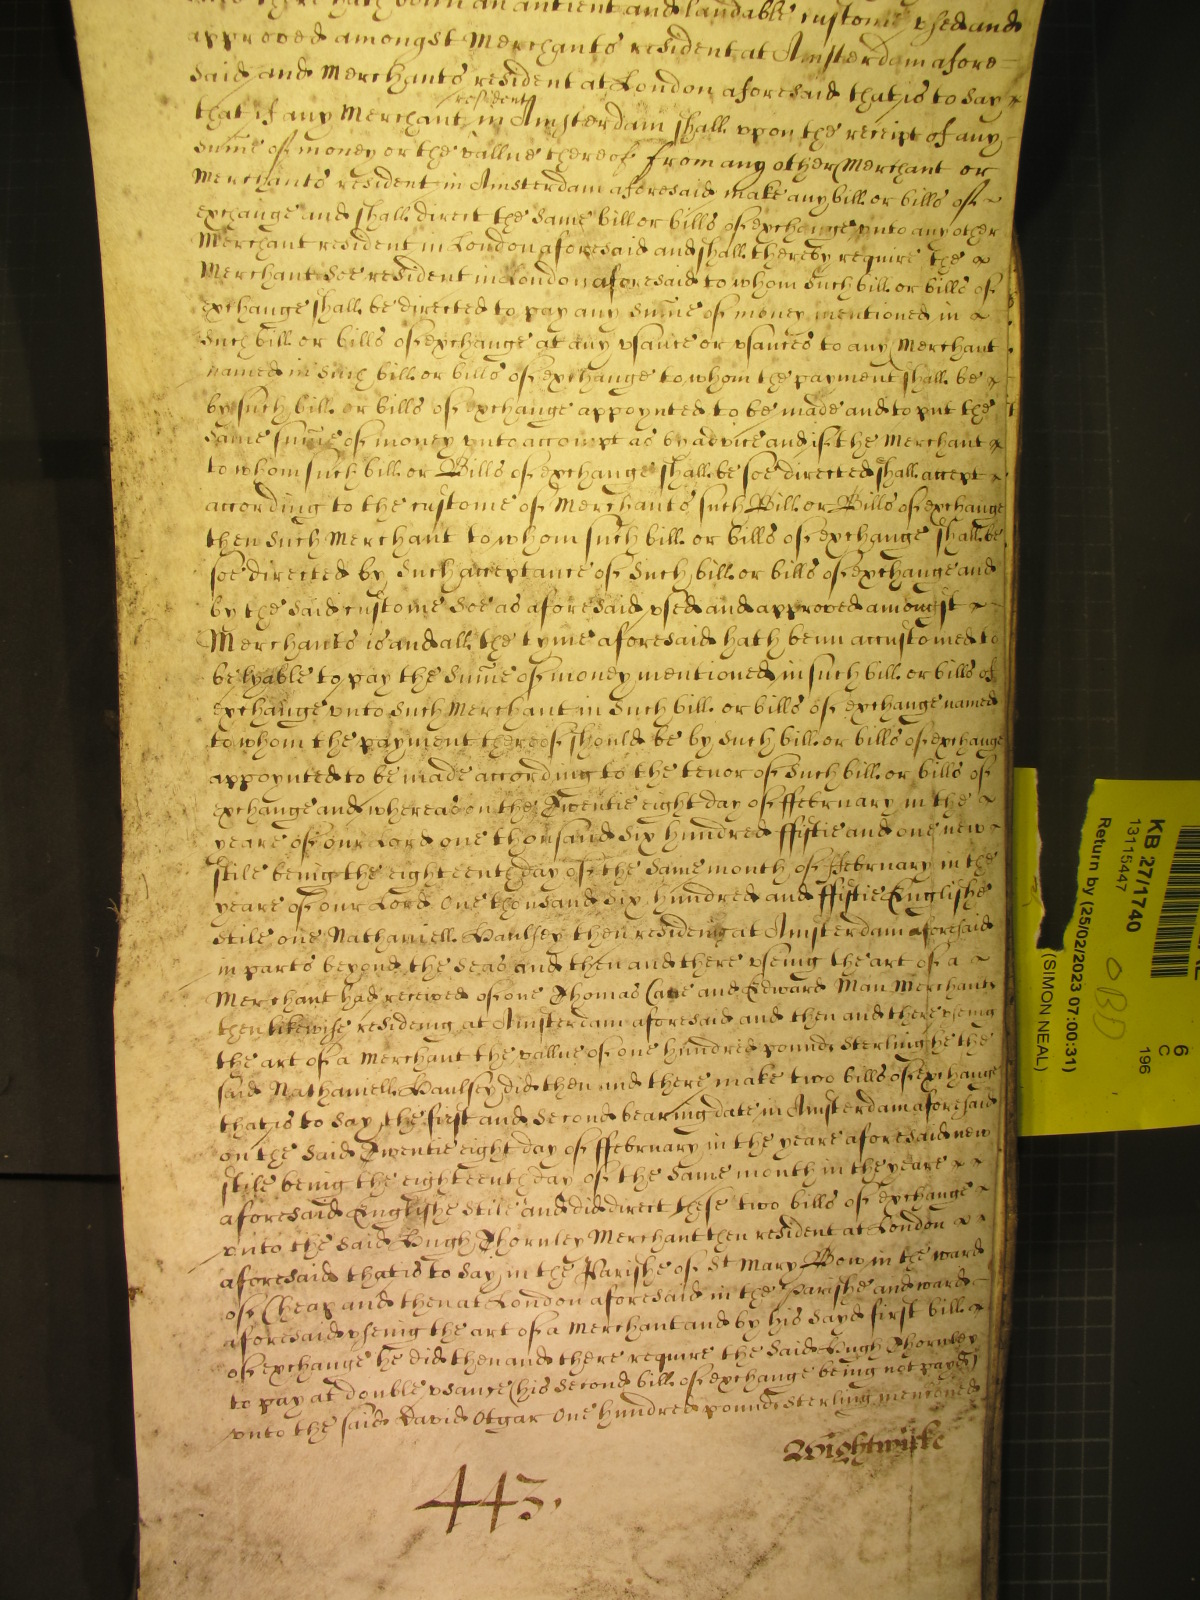 there hath been an antient and laudable custome vsed and
approved amongst Merchants resident at Amsterdam afore-
said and Merchants resident at London aforesaid that is to say
resident
that if any Merchant in Amsterdam shall vpon the receipt of any
summe of money or the vallue thereof from any other Merchant or
Merchants resident in Amsterdam aforesaid make any bill or bills of
exchange and shall direct the same bill or bills of exchange vnto any other
Merchant resident in London aforesaid and shall thereby require the
Merchant soe resident in London aforesaid to whom such bill or bills of
exchange shall be directed to pay any summe of money mentioned in
such bill or bills of exchange at any vsance or vsances to any Merchant
named in such bill or bills of exchange to whom the payment shall be
by such bill or bills of exchange appoynted to be made and to put the
same summe of money vnto accompt as by advice and if the Merchant
to whom such bill or Bills of exchange shall be soe directed shall accept
according to the custome of Merchants such Bill or Bills of exchange
then such Merchant to whom such bill or bills of exchange shall be
soe directed by such acceptance of such bill or bills of exchange and
by the said custome soe as aforesaid vsed and approved amongst
Merchants is and all the tyme aforesaid hath benn accustomed to
be lyable to pay the summe of money mentioned in such bill or bills of
exchange vnto such Merchant in such bill or bills of exchange named
to whom the payment thereof should be by such bill or bills of exchange
appoynted to be made according to the tenor of such bill or bills of
exchange and whereas on the Twentie eight day of ffebruary in the
yeare of our Lord one thousand six hundred ffiftie and one new
stile being the eighteenth day of the same month of ffebruary in the
yeare of our Lord One thousand six hundred and ffiftie Englishe
stile one Nathaniell Haulsey then resideing at Amsterdam aforesaid
in parts beyond the seas and then and there vseing the art of a
Merchant had received of one Thomas Cane and Edward Man Merchants
then likewise resideing at Amsterdam aforesaid and then and there vseing
the art of a Merchant the vallue of one hundred pounds sterling he the
said Nathaniell Haulsey did then and there make two bills of exchange
that is to say the first and second bearing date in Amsterdam aforesaid
on the said Twentie eight day of ffebruary in the yeare aforesaid new
stile being the eighteenth day of the same month in the yeare
aforesaid Englishe stile and did direct these two bills of exchange
vnto the said Hugh Thornley Merchant then resident at London
aforesaid that is to say in the Parishe of St Mary Bow in the ward
of Cheap and then at London aforesaid in the Parishe and ward
aforesaid vseing the art of a Merchant and by his sayd first bill
of exchange he did then and there require the said Hugh Thornley
to pay at double vsance (his second bill of exchange being not payd)
vnto the said David Otgar One hundred pounds sterling mencioned
Wightwicke
443.
KB 27/1740
13115447
Return by (25/02/2023 07:00:31)
(SIMON NEAL)
6
C
196